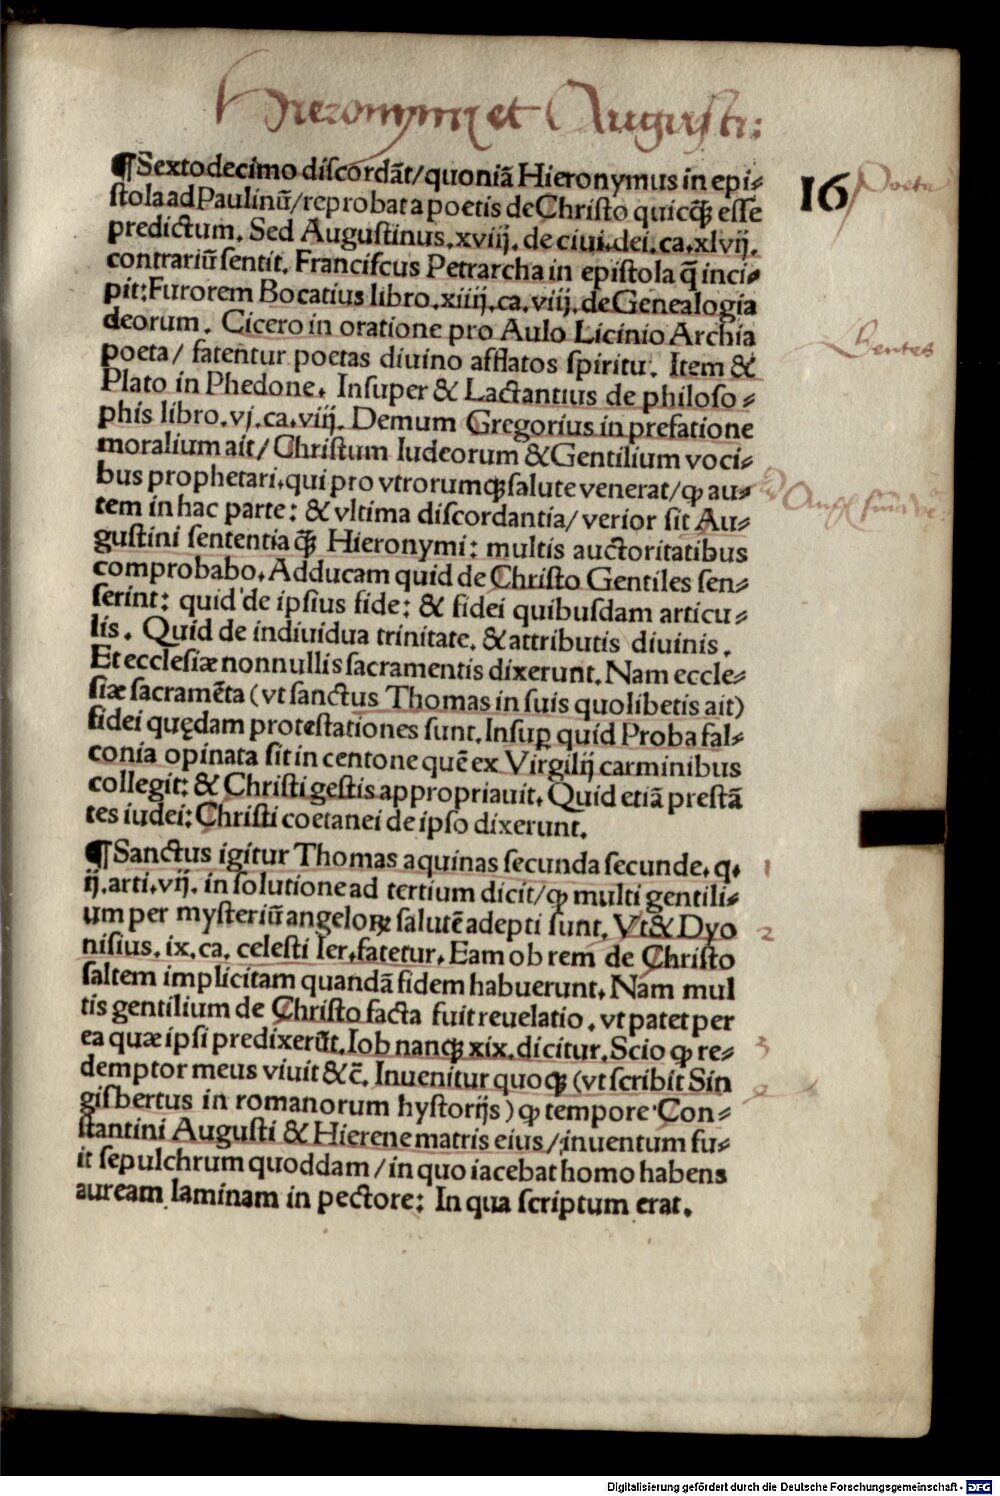 Hieronymi et Augusti:
¶Sextodecimo discordãt/quoniã Hieronymus in epi⸗
stola ad Paulinũ/reprobat a poetis de Christo quicq̃ esse
predictum. Sed Augustinus.xviij. de ciui.dei.ca.xlvij.
contrariũ sentit. Francifcus Petrarcha in epistola q̃ inci⸗
pit:Furorem Bocatius libro.xiiij.ca.viij.de Genealogia
deorum. Cicero in oratione pro Aulo Licinio Archia
poeta/ fatentur poetas diuino afflatos spiritu. Item &
Plato in Phedone. Insuper & Lactantius de philoso⸗
phis libro.vj.ca.viij. Demum Gregorius in prefatione
moralium ait/ Christum Iudeorum & Gentilium voci⸗
bus prophetari.qui pro vtrorumqꝫ salute venerat/ꝙ au⸗
tem in hac parte: & vltima discordantia/ verior sit Au⸗
gustini sententia q̃ꝫ Hieronymi: multis auctoritatibus
comprobabo. Adducam quid de Christo Gentiles sen⸗
serint: quid de ipsius fide: & fidei quibusdam articu⸗
lis. Quid de indiuidua trinitate. & attributis diuinis.
Et ecclesiæ nonnullis sacramentis dixerunt. Nam eccle⸗
siæ sacramẽta (vt sanctus Thomas in suis quolibetis ait)
fidei quędam protestationes sunt. Insuꝑ quid Proba fal⸗
conia opinata sit in centone quẽ ex Virgilij carminibus
collegit: & Christi gestis appropriauit. Quid etiã prestã
tes iudei: Christi coetanei de ipso dixerunt.
¶Sanctus igitur Thomas aquinas secunda secunde. q.
ij.arti.vij. in solutione ad tertium dicit/ꝙ multi gentili⸗
um per mysteriũ angeloꝝ salutẽ adepti sunt. Vt & Dyo
nisius. ix. ca. celesti Ier.fatetur. Eam ob rem de Christo
saltem implicitam quandã fidem habuerunt. Nam mul
tis gentilium de Christo facta fuit reuelatio. vt patet per
ea quæ ipsi predixerũt. Iob nanqꝫ xix. dicitur. Scio ꝙ re⸗
demptor meus viuit &c̃. Inuenitur quoqꝫ (vt scribit Sin
gisbertus in romanorum hystorijs) ꝙ tempore Con⸗
stantini Augusti & Hierene matris eius /inuentum fu⸗
it sepulchrum quoddam /in quo iacebat homo habens
auream laminam in pectore: In qua scriptum erat.
16
Poeta
Gentes
1
2
3
Digitalisierung gefördert durch die Deutsche Forschungsgemeinschaft - DFG